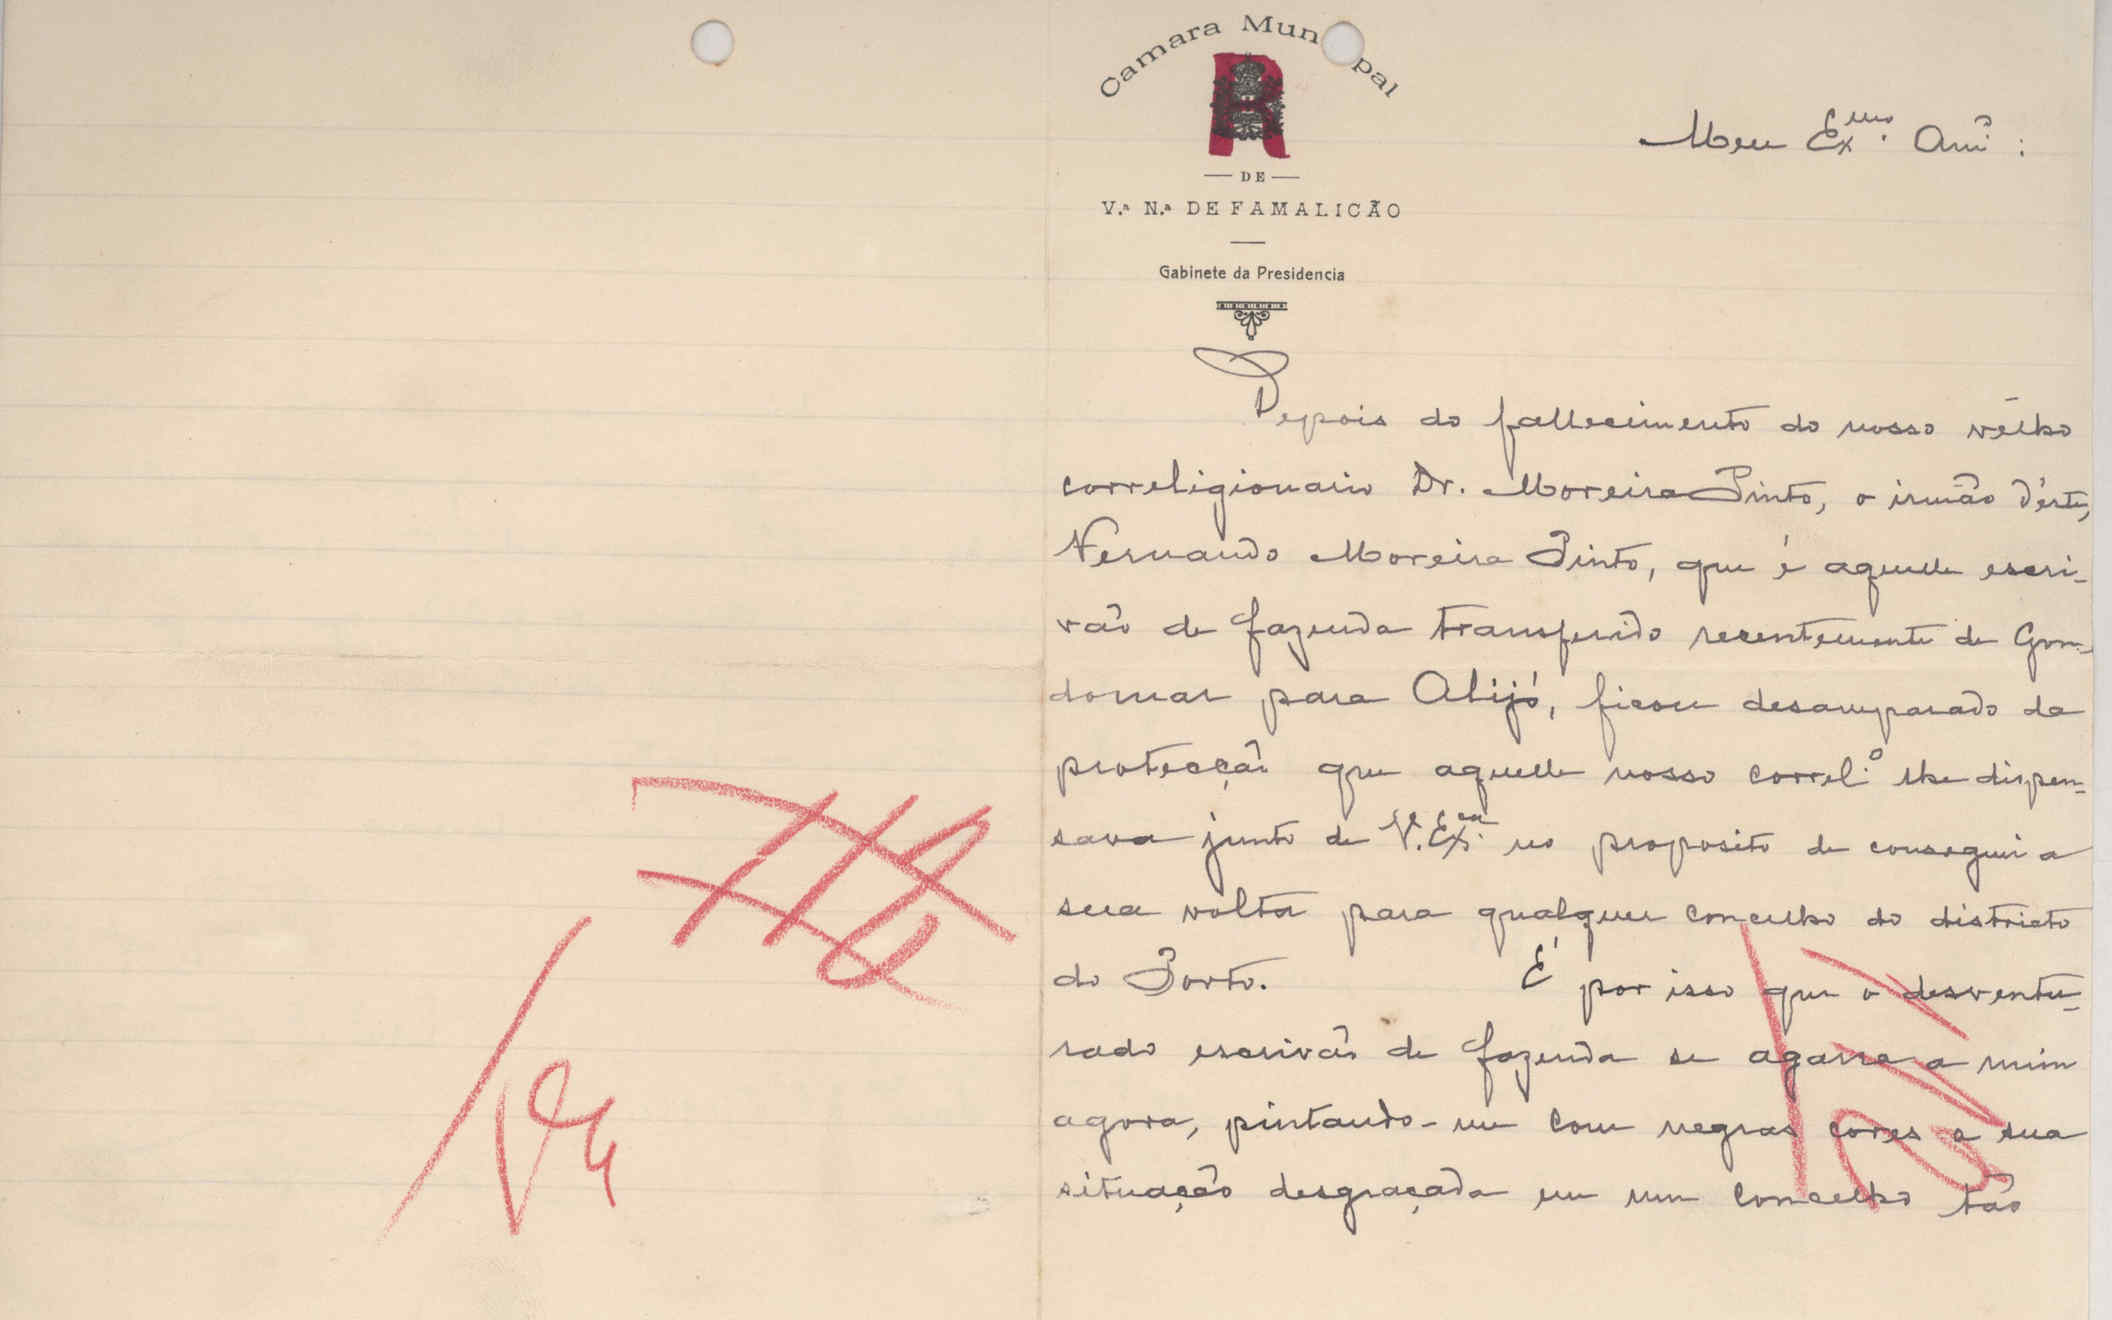 Camara Mun pal
R
— DE —
V.ª N.ª DE FAMALICÃO
Gabinete da Presidencia
Meu Exmo. Amº:
Depois do fallecimento do nosso velho
correligionario Dr. Moreira Pinto, o irmão d'este,
Fernando Moreira Pinto, que é aquelle escri-
vão de fazenda transferido recentemente de Gon-
domar para Alijó, ficou desamparado da
protecção que aquelle nosso correl.º lhe dispen-
sava junto de V. Exca. no proposito de conseguir a
sua volta para qualquer concelho do districto
do Porto. É por isso que o desventu-
rado escrivão de fazenda se agarra a mim
agora, pintando-me com negras cores a sua
situação desgraçada em um concelho tão